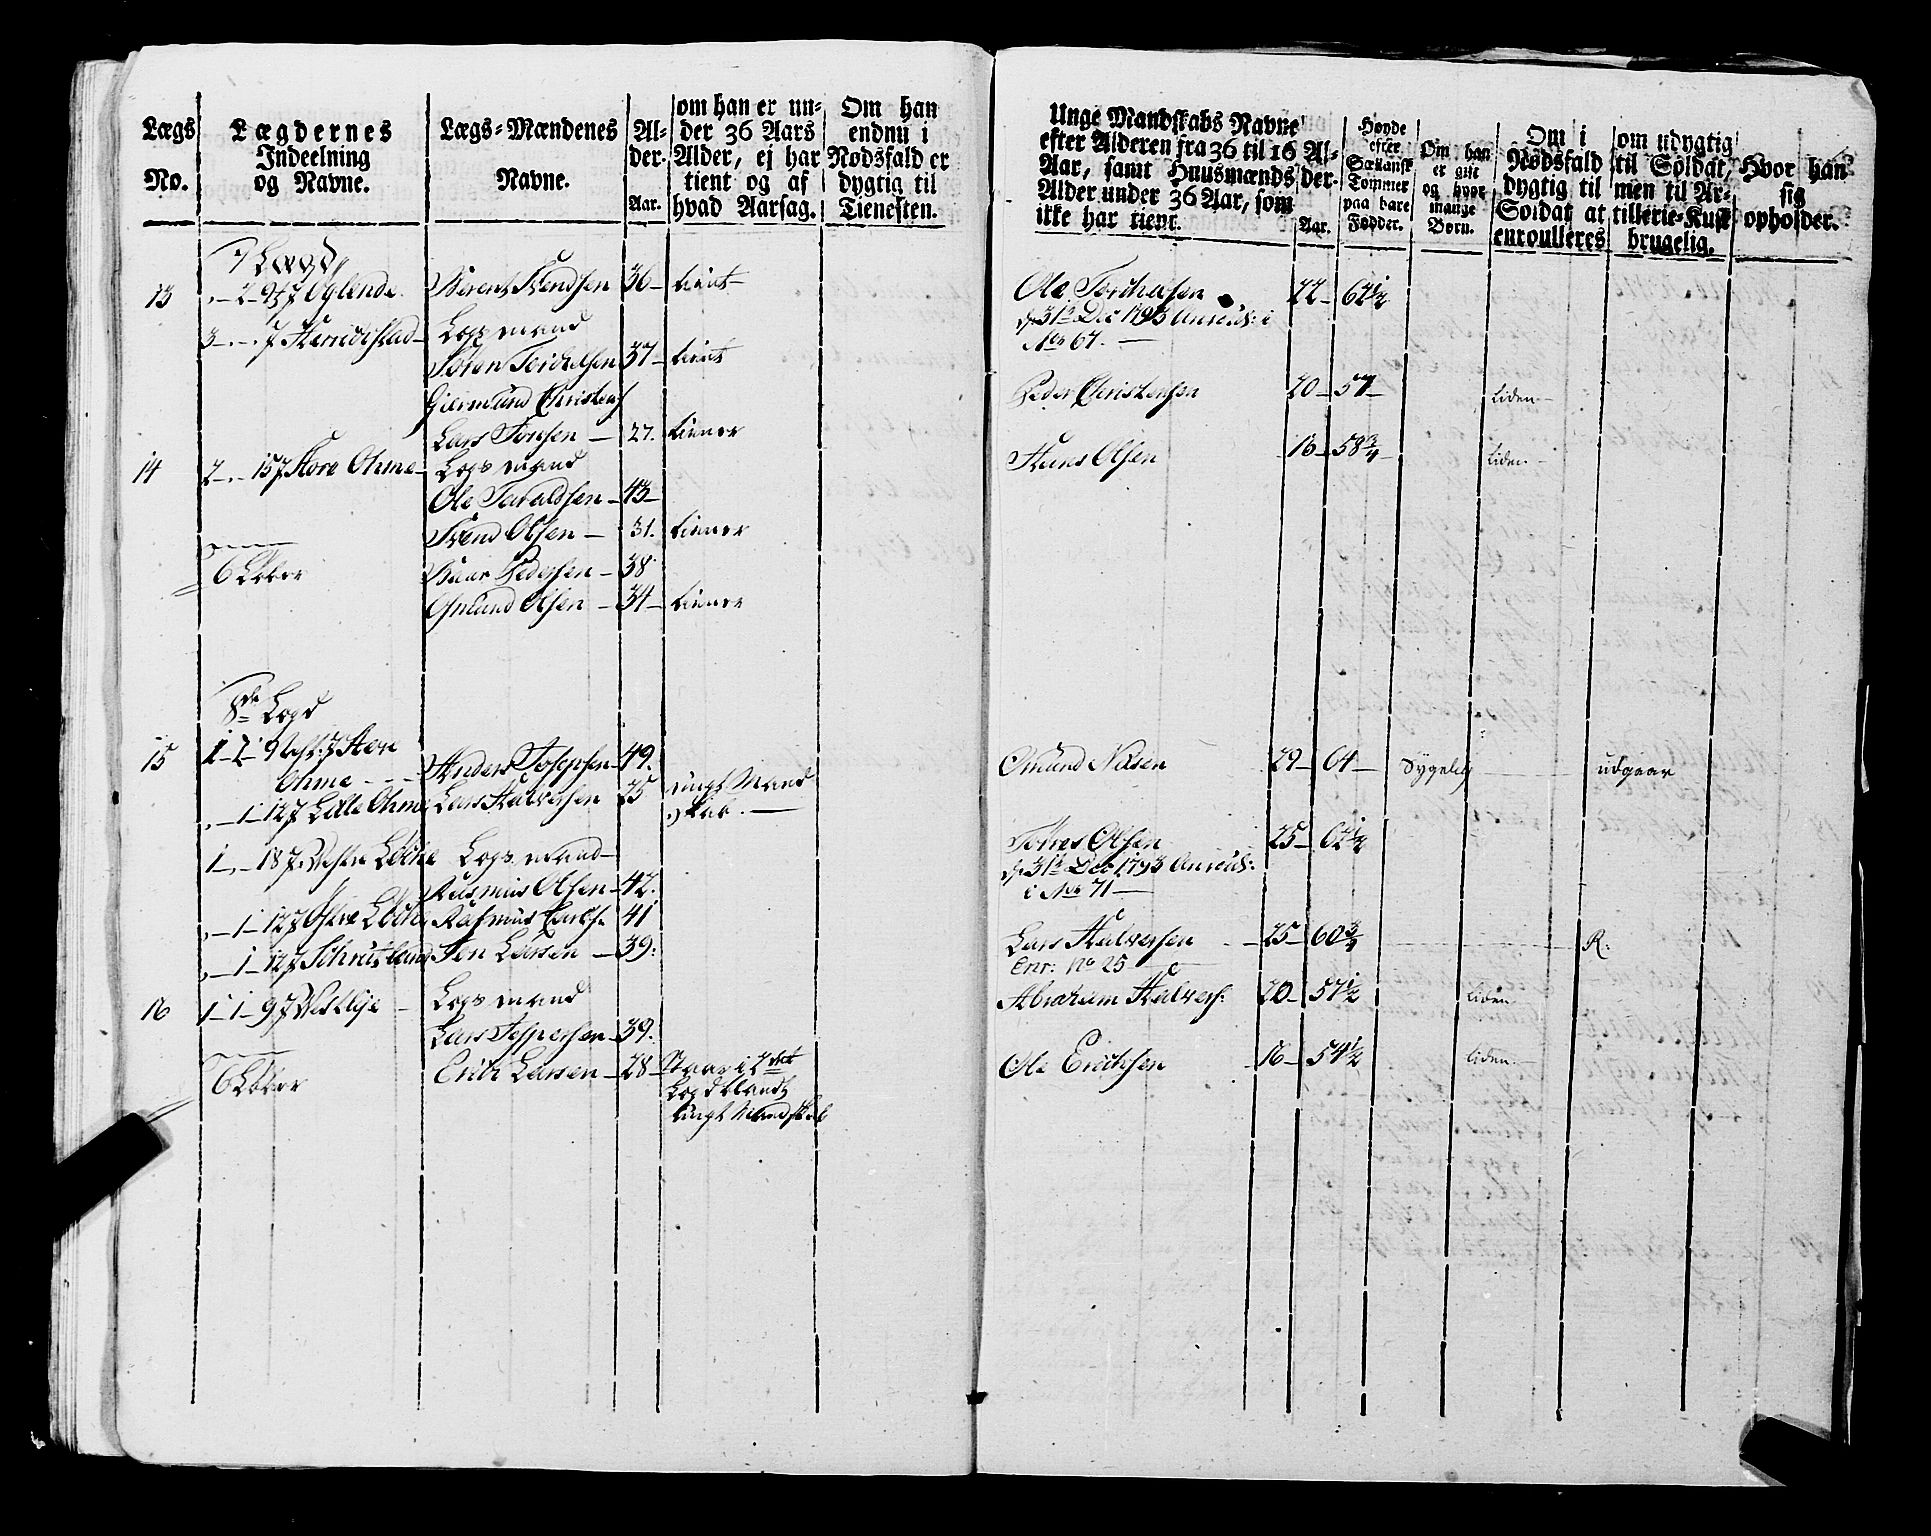 Lægs
No.
Lægdernes
Indeelning
og Navne.
Lægs-Mændenes
Navne.
Al-
der.
Aar.
om han er un-
der 36 Aars
Alder, ej har
tient og af
hvad Aarsag.
Om han
endnu i
Nødsfald er
dygtig til
Tienesten.
7 Lægd
13 2 Oglende Svend­sen 36 tient
3 Lægsmand
Soren 37 tient
Giermund Christens
Lars Tonsen 27. tiener
14 2 15 7 Store Ohme Lægsmand
Ole Taraldsen 43
Svend Olsen 31. tiener
6 Løber Pedersen 38
Omund Olsen 34 tiener
8de Lægd
15 1 2 9 7 Store
Ohme Anders Josephsen 49.
1 12 7 Lille Ohme Lars Halversen 25 ungt Mand
skab.
1 18 7 Lægsmand
Rasmus Olsen 42.
1 12 7 Rasmus 41
1 12 7 Jon Larsen 39.
16 1 1 9 7 Lægsmand
Lars Jespersen 39.
6 Løber Erich Larsen 28 Staar i
Lægd blandt
ungt Mandskab
Unge Mandskabs Navne
efter Alderen fra 36 til 16
Aar, samt Huusmænds
Alder under 36 Aar, som
ikke har tient.
Al-
der.
Aar.
Høyde
efter
Sællansk
Tommer
paa bare
Fødder.
Om han
er gift
og hvor
mange
Børn.
Om i
Nødsfald
dygtig til
Soldat at
enroulleres
om udygtig
til Soldat,
men til Ar-
tillerie-Kusk
brugelig.
Hvor han
sig
opholder.
Ole 22 62 1/2
d. 31 Dec 1793 i
No 67.
Peder Christensen 20 57 liden
Hans Olsen 16 58 3/4 liden
Omund Nilsen 29 64 Sygelig udgaar
Torres Olsen 25 62 1/2
d. 31 Dec 1793
i No 71
Lars Halversen 25 60 3/4 R.
Enr: No 25
Abraham Halvers: 20 57 1/2 liden
Ole Erichsen 16 54 1/2 liden